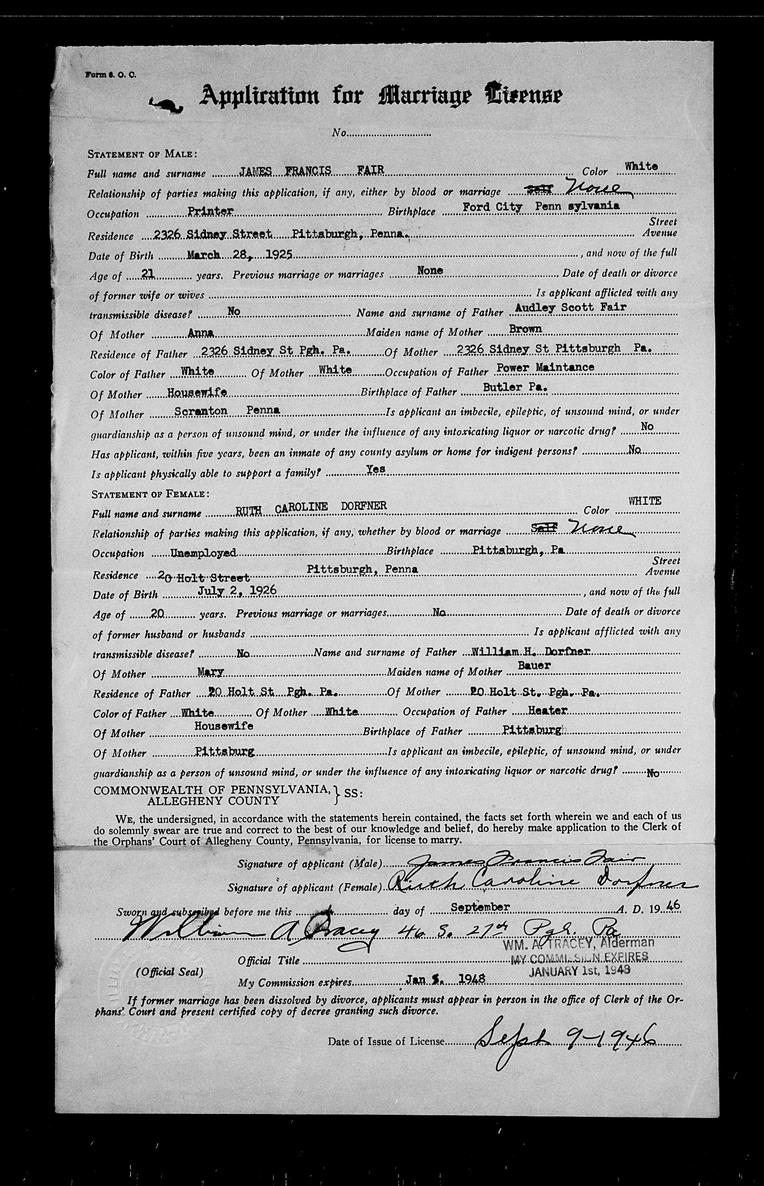 Form S. O. C.
Application for Marriage License
No..............................
STATEMENT OF MALE:
Full name and surname JAMES FRANCIS FAIR Color White
Relationship of parties making this application, if any, either by blood or marriage None
Occupation Printer Birthplace Ford City Penn sylvania
Residence 2326 Sidney Street Pittsburgh, Penna. Street Avenue
Date of Birth March 28, 1925, and now of the full
Age of 21 years. Previous marriage or marriages None Date of death or divorce
of former wife or wives Is applicant afflicted with any
transmissible disease? No Name and surname of Father Audley Scott Fair
Of Mother Anna Maiden name of Mother Brown
Residence of Father 2326 Sidney St Pgh. Pa. Of Mother 2326 Sidney St Pittsburgh Pa.
Color of Father White Of Mother White Occupation of Father Power Maintance
Of Mother Housewife Birthplace of Father Butler Pa.
Of Mother Scranton Penna Is applicant an imbecile, epileptic, of unsound mind, or under
guardianship as a person of unsound mind, or under the influence of any intoxicating liquor or narcotic drug? No
Has applicant, within five years, been an inmate of any county asylum or home for indigent persons? No
Is applicant physically able to support a family? Yes
STATEMENT OF FEMALE:
Full name and surname RUTH CAROLINE DORFNER Color WHITE
Relationship of parties making this application, if any, whether by blood or marriage Self None
Occupation Unemployed Birthplace Pittsburgh, Pa
Residence 20 Holt Street Pittsburgh, Penna Street Avenue
Date of Birth July 2, 1926, and now of the full
Age of 20 years. Previous marriage or marriages No Date of death or divorce
of former husband or husbands Is applicant afflicted with any
transmissible disease? No Name and surname of Father William H. Dorfner
Of Mother Mary Maiden name of Mother Bauer
Residence of Father 20 Holt St Pgh. Pa. Of Mother 20 Holt St. Pgh. Pa.
Color of Father White Of Mother White Occupation of Father Heater
Of Mother Housewife Birthplace of Father Pittsburg
Of Mother Pittsburg Is applicant an imbecile, epileptic, of unsound mind, or under
guardianship as a person of unsound mind, or under the influence of any intoxicating liquor or narcotic drug? No
COMMONWEALTH OF PENNSYLVANIA, } SS:
ALLEGHENY COUNTY
WE, the undersigned, in accordance with the statements herein contained, the facts set forth wherein we and each of us
do solemnly swear are true and correct to the best of our knowledge and belief, do hereby make application to the Clerk of
the Orphans' Court of Allegheny County, Pennsylvania, for license to marry.
Signature of applicant (Male) James Francis Fair
Signature of applicant (Female) Ruth Caroline Dorfner
Sworn and subscribed before me this day of September A. D. 19 46
William A Tracey 46 S. 27th Pgh. Pa
WM. A. TRACEY, Alderman
Official Title MY COMMISSION EXPIRES
(Official Seal) JANUARY 1st, 1948
My Commission expires Jan 1948
If former marriage has been dissolved by divorce, applicants must appear in person in the office of Clerk of the Or-
phans' Court and present certified copy of decree granting such divorce.
Date of Issue of License Sept 9-1946